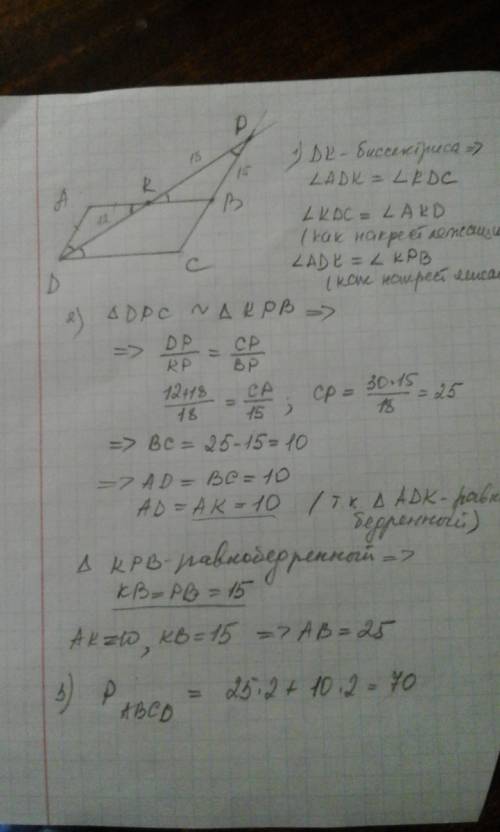 P
18
15
A
K
B
12
D
C
1) DK - биссектриса =>
∠ADK = ∠KDC
∠KDC = ∠AKD
(как накрест лежащи
∠ADK = ∠KPB
(как накрест лежа
2) △DPC ~ △KPB =>
=> DP/KP = CP/BP
12+18/18 = CP/15 ; CP = 30·15/18 = 25
=> BC = 25-15 = 10
=> AD = BC = 10
AD = AK = 10 (т.к △ADK - равно
бедренный)
△ KPB - равнобедренный =>
KB = PB = 15
AK = 10, KB = 15 => AB = 25
3) P ABCD = 25·2 + 10·2 = 70